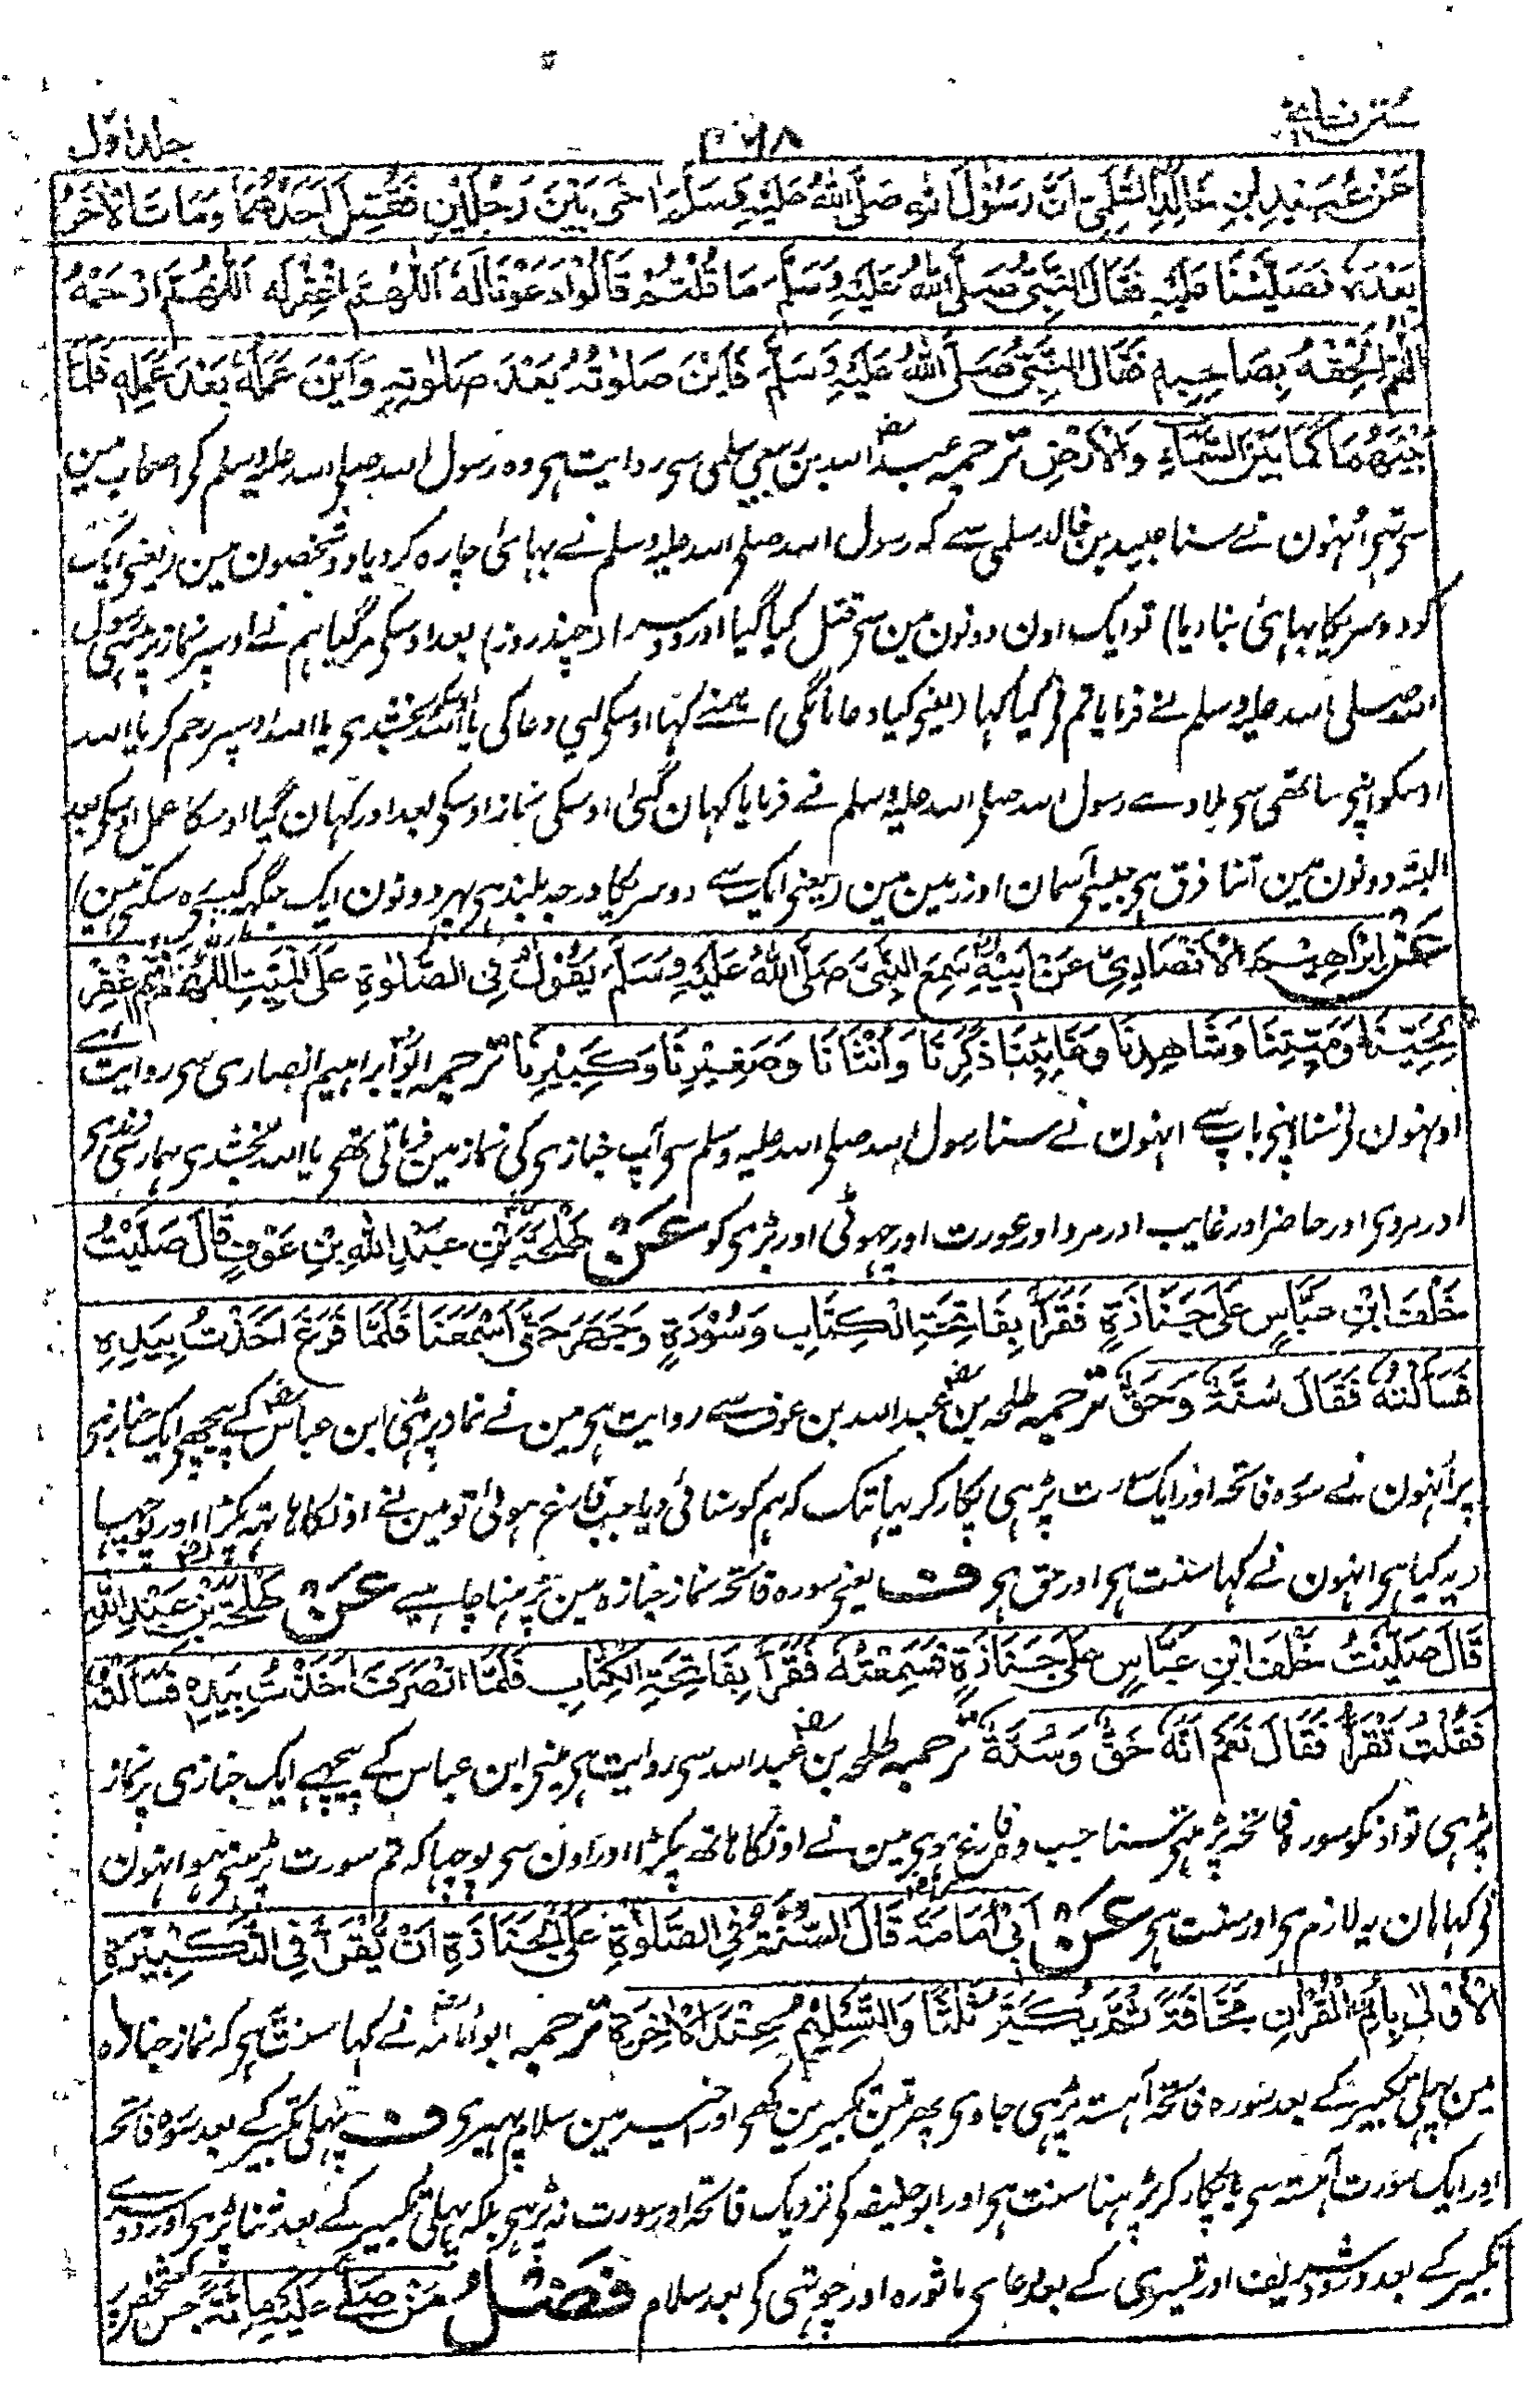 سنن نسائی ۳۶۸ جلد اول
عَنْ عُبَيْدِ بْنِ خَالِدِ السُّلَمِيِّ اَنَّ رَسُوْلَ اللهِ صَلَّى اللهُ عَلَيْهِ وَسَلَّمَ اٰخٰى بَيْنَ رَجُلَيْنِ فَقُتِلَ اَحَدُهُمَا وَمَاتَ الْاٰخَرُ
بَعْدَهٗ فَصَلَّيْنَا عَلَيْهِ فَقَالَ النَّبِيُّ صَلَّى اللهُ عَلَيْهِ وَسَلَّمَ مَا قُلْتُمْ قَالُوْا دَعَوْنَا لَهٗ اَللّٰهُمَّ اغْفِرْ لَهٗ اَللّٰهُمَّ ارْحَمْهُ
اَللّٰهُمَّ اَلْحِقْهُ بِصَاحِبِهٖ فَقَالَ النَّبِيُّ صَلَّى اللهُ عَلَيْهِ وَسَلَّمَ فَاَيْنَ صَلٰوتُهٗ بَعْدَ صَلٰوتِهٖ وَاَيْنَ عَمَلُهٗ بَعْدَ عَمَلِهٖ فَلَمَا
بَيْنَهُمَا كَمَا بَيْنَ السَّمَاءِ وَالْاَرْضِ ترجمہ عبد اللہ بن ربیعہ سلمی سے روایت ہے وہ رسول اللہ صلی اللہ علیہ وسلم کے اصحاب مین
سے تہے اُنہون نے سنا عبید بن خالد سلمی سے کہ رسول اللہ صلی اللہ علیہ وسلم نے بہائی چارہ کر دیا دو شخصون مین (یعنے ایک
کو دوسریکا بہائی بنا دیا) تو ایک اون دونون مین سے قتل کیا گیا اور دوسرا (چند روز) بعد اوسکے مر گیا ہم نے اوسپر نماز پڑہی رسول
اللہ صلی اللہ علیہ وسلم نے فرمایا تم نے کیا کہا (یعنے کیا دعا مانگی) ہمنے کہا اوسکے لیے دعا کی یا اللہ اوسکو بخشدے یا اللہ اوسپر رحم کر یا اللہ
اوسکو اپنے ساتھی سے ملا دے رسول اللہ صلی اللہ علیہ وسلم نے فرمایا کہان گئی اوسکی نماز اوسکے بعد اور کہان گیا اوسکا عمل اوسکے بعد
البتہ دونون مین اتنا فرق ہے جیسے آسمان اور زمین مین (یعنے ایک سے دوسریکا درجہ بلند ہے پہر دونون ایک جگہہ کیسے رہ سکتے ہین)
عَنْ اِبْرَاهِيْمَ الْاَنْصَارِيِّ عَنْ اَبِيْهِ اَنَّهٗ سَمِعَ النَّبِيَّ صَلَّى اللهُ عَلَيْهِ وَسَلَّمَ يَقُوْلُ فِي الصَّلٰوةِ عَلَى الْمَيِّتِ اَللّٰهُمَّ اغْفِرْ
لِحَيِّنَا وَمَيِّتِنَا وَشَاهِدِنَا وَغَائِبِنَا ذَكَرِنَا وَاُنْثَانَا وَصَغِيْرِنَا وَكَبِيْرِنَا ترجمہ ابو ابراہیم انصاری سے روایت ہے
اونہون نے سنا اپنے باپ سے انہون نے سنا رسول اللہ صلی اللہ علیہ وسلم سے آپ جنازے کی نماز مین فرماتے تھے یا اللہ بخشدے ہمارے زندے
اور مردے اور حاضر اور غایب اور مرد اور عورت اور چہوٹے اور بڑے کو عَنْ طَلْحَةَ بْنِ عَبْدِ اللهِ بْنِ عَوْفٍ قَالَ صَلَّيْتُ
خَلْفَ ابْنِ عَبَّاسٍ عَلٰى جَنَازَةٍ فَقَرَأَ بِفَاتِحَةِ الْكِتَابِ وَسُوْرَةٍ وَجَهَرَ حَتّٰى اَسْمَعَنَا فَلَمَّا فَرَغَ اَخَذْتُ بِيَدِهٖ
فَسَاَلْتُهٗ فَقَالَ سُنَّةٌ وَحَقٌّ ترجمہ طلحہ بن عبد اللہ بن عوف سے روایت ہے مین نے نماز پڑہی ابن عباس کے پیچھے ایک جنازے
پر اُنہون نے سورہ فاتحہ اور ایک سورت پڑہی پکار کر یہانتک کہ ہم کو سنائی دیا جب فارغ ہوئے تو مین نے اونکا ہاتہہ پکڑا اور پوچہا
(یہ کیا ہے) انہون نے کہا سنت ہے اور حق ہے ف یعنے سورہ فاتحہ نماز جنازہ مین پڑہنا چاہیے عَنْ طَلْحَةَ بْنِ عَبْدِ اللهِ
قَالَ صَلَّيْتُ خَلْفَ ابْنِ عَبَّاسٍ عَلٰى جَنَازَةٍ فَسَمِعْتُهٗ فَقَرَأَ بِفَاتِحَةِ الْكِتَابِ فَلَمَّا انْصَرَفَ اَخَذْتُ بِيَدِهٖ فَسَاَلْتُهٗ
فَقُلْتُ تَقْرَأُ فَقَالَ نَعَمْ اِنَّهٗ حَقٌّ وَسُنَّةٌ ترجمہ طلحہ بن عبد اللہ سے روایت ہے مینے ابن عباس کے پیچہے ایک جنازے پر نماز
پڑہی تو اونکو سورہ فاتحہ پڑہتے سنا جب وہ فارغ ہوے مین نے اونکا ہاتھ پکڑا اور اون سے پوچہا کہ تم سورت پڑہتے ہو انہون
نے کہا ہان یہ لازم ہے اور سنت ہے عَنْ اَبِيْ اُمَامَةَ قَالَ السُّنَّةُ فِي الصَّلٰوةِ عَلَى الْجَنَازَةِ اَنْ يُّقْرَأَ فِي التَّكْبِيْرَةِ
الْاُوْلٰى بِاُمِّ الْقُرْاٰنِ مُخَافَتَةً ثُمَّ يُكَبِّرَ ثَلٰثًا وَالتَّسْلِيْمُ عِنْدَ الْاٰخِرَةِ ترجمہ ابو امامہ نے کہا سنت ہے کہ نماز جنازہ
مین پہلی تکبیر کے بعد سورہ فاتحہ آہستہ پڑہی جاوے پھر تین تکبیرین کہے اور اخیر مین سلام پہیرے ف پہلی تکبیر کے بعد سورہ فاتحہ
اور ایک سورت آہستہ سے یا پکار کر پڑہنا سنت ہے اور ابو حنیفہ کے نزدیک فاتحہ اور سورت نہ پڑہے بلکہ پہلی تکبیر کے بعد ثنا پڑہے اور دوسرے
تکبیر کے بعد درود شریف اور تیسری کے بعد دعاے ماثورہ اور چوتہی کے بعد سلام فَضْلُ مَنْ صَلّٰى عَلَيْهِ مِائَةٌ